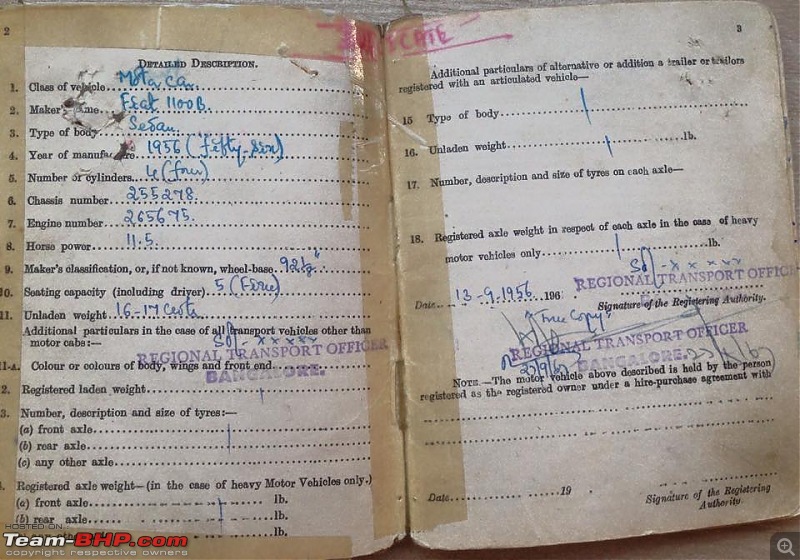 2
DETAILED DESCRIPTION.
1. Class of vehicle Motor Car.
2. Maker's name Fiat 1100B.
3. Type of body Sedan
4. Year of manufacture 1956 (fifty-six)
5. Number or cylinders 4 (four)
6. Chassis number 255278.
7. Engine number 265675.
8. Horse power 11.5.
9. Maker's classification, or, if not known, wheel-base 92½"
10. Seating capacity (including driver) 5 (Five)
11. Unladen weight 16-17 Cwts
Additional particulars in the case of all transport vehicles other than
motor cabs:—
Sd/- xxxxx
REGIONAL TRANSPORT OFFICER
BANGALORE.
11-A. Colour or colours of body, wings and front end
2. Registered laden weight
3. Number, description and size of tyres:—
(a) front axle
(b) rear axle
(c) any other axle
Registered axle weight—(in the case of heavy Motor Vehicles only.)
(a) front axle lb.
(b) rear axle lb.
lb.
3
DUPLICATE
Additional particulars of alternative or addition a trailer or trailors
registered with an articulated vehicle—
15 Type of body
16. Unladen weight lb.
17. Number, description and size of tyres on each axle—
18. Registered axle weight in respect of each axle in the case of heavy
motor vehicles only lb.
Sd/- xxxxx
REGIONAL TRANSPORT OFFICE
Date 13-9-1956 196
Signature of the Registering Authority.
"True Copy"
REGIONAL TRANSPORT OFFICER
BANGALORE.
NOTE.—The motor vehicle above described is held by the person
registered as the registered owner under a hire-purchase agreement with
Date 19
Signature of the Registering
Authority.
HOSTED ON
Team-BHP.com
copyright respective owners